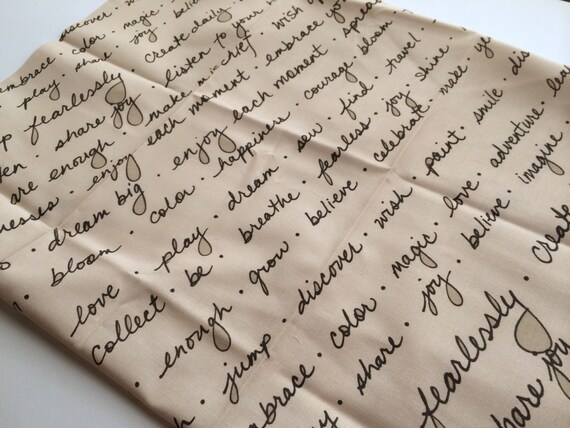 discover
embrace · color · magic · believe
play · share · joy · create daily
fearlessly · listen to your
share joy · make mischief · wish
are enough · each moment · embrace
enjoy · enjoy each moment · spread
dream big · color · happiness · courage · bloom
bloom · play · dream · sew · find · travel
love · be · breathe · fearless · joy · shine
collect · grow · believe · celebrate · make
enough · discover · wish · paint · smile
jump · color · magic · love · adventure
embrace · share · joy · believe · imagine
play · fearlessly · create
share joy